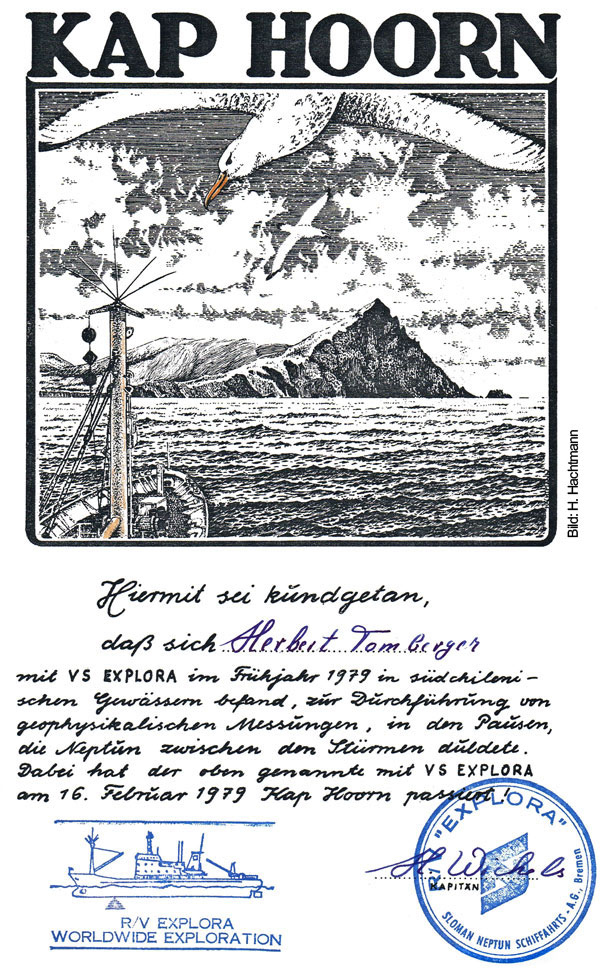 KAP HOORN
Bild: H. Hachtmann
Hiermit sei kundgetan,
daß sich Herbert Tomberger
mit VS EXPLORA im Frühjahr 1979 in südchileni-
schen Gewässern befand, zur Durchführung von
geophysikalischen Messungen, in den Pausen,
die Neptun zwischen den Stürmen duldete.
Dabei hat der oben genannte mit VS EXPLORA
am 16. Februar 1979 Kap Hoorn passiert!
R/V EXPLORA
WORLDWIDE EXPLORATION
H. Wichels
KAPITÄN
"EXPLORA"
SLOMAN NEPTUN SCHIFFAHRTS-A.G., Bremen